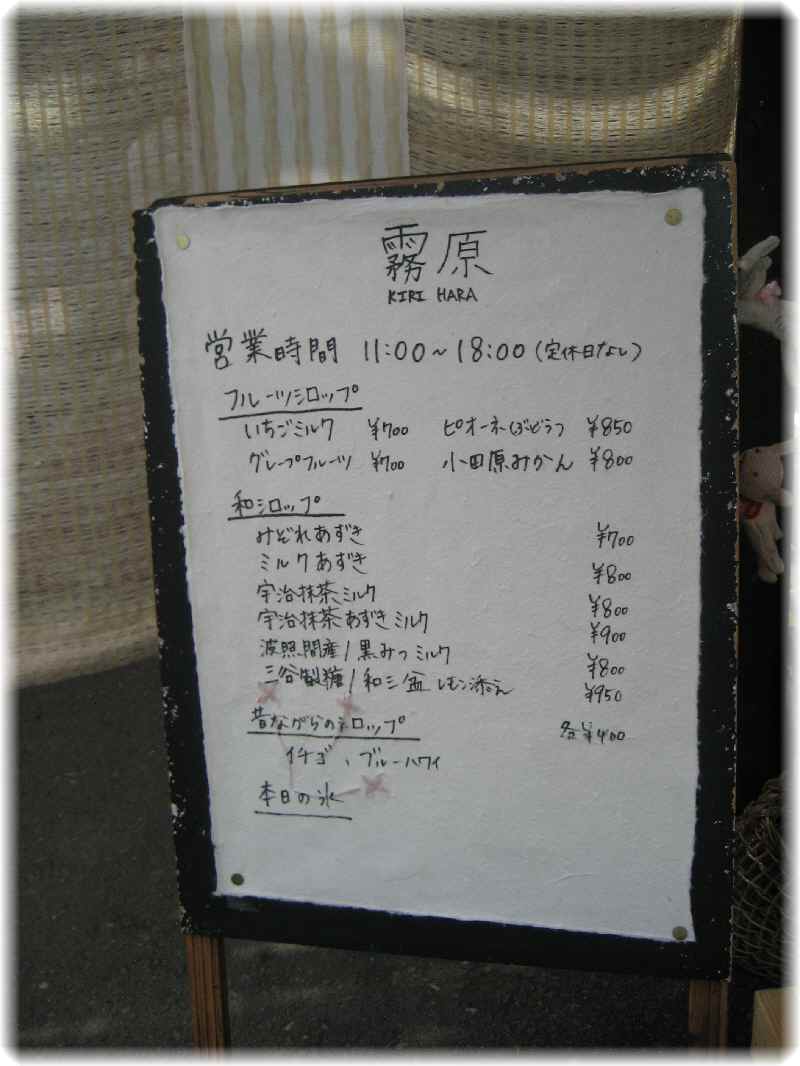 霧原
KIRI HARA
営業時間 11:00~18:00 (定休日なし)
フルーツシロップ
いちごミルク ¥700 ピオーネぶどう ¥850
グレープフルーツ ¥700 小田原みかん ¥800
和シロップ
みぞれあずき ¥700
ミルクあずき ¥800
宇治抹茶ミルク ¥800
宇治抹茶あずきミルク ¥900
波照間産/黒みつミルク ¥800
三谷製糖/和三盆 レモン添え ¥950
昔ながらのシロップ 各¥400
イチゴ、ブルーハワイ
本日の氷